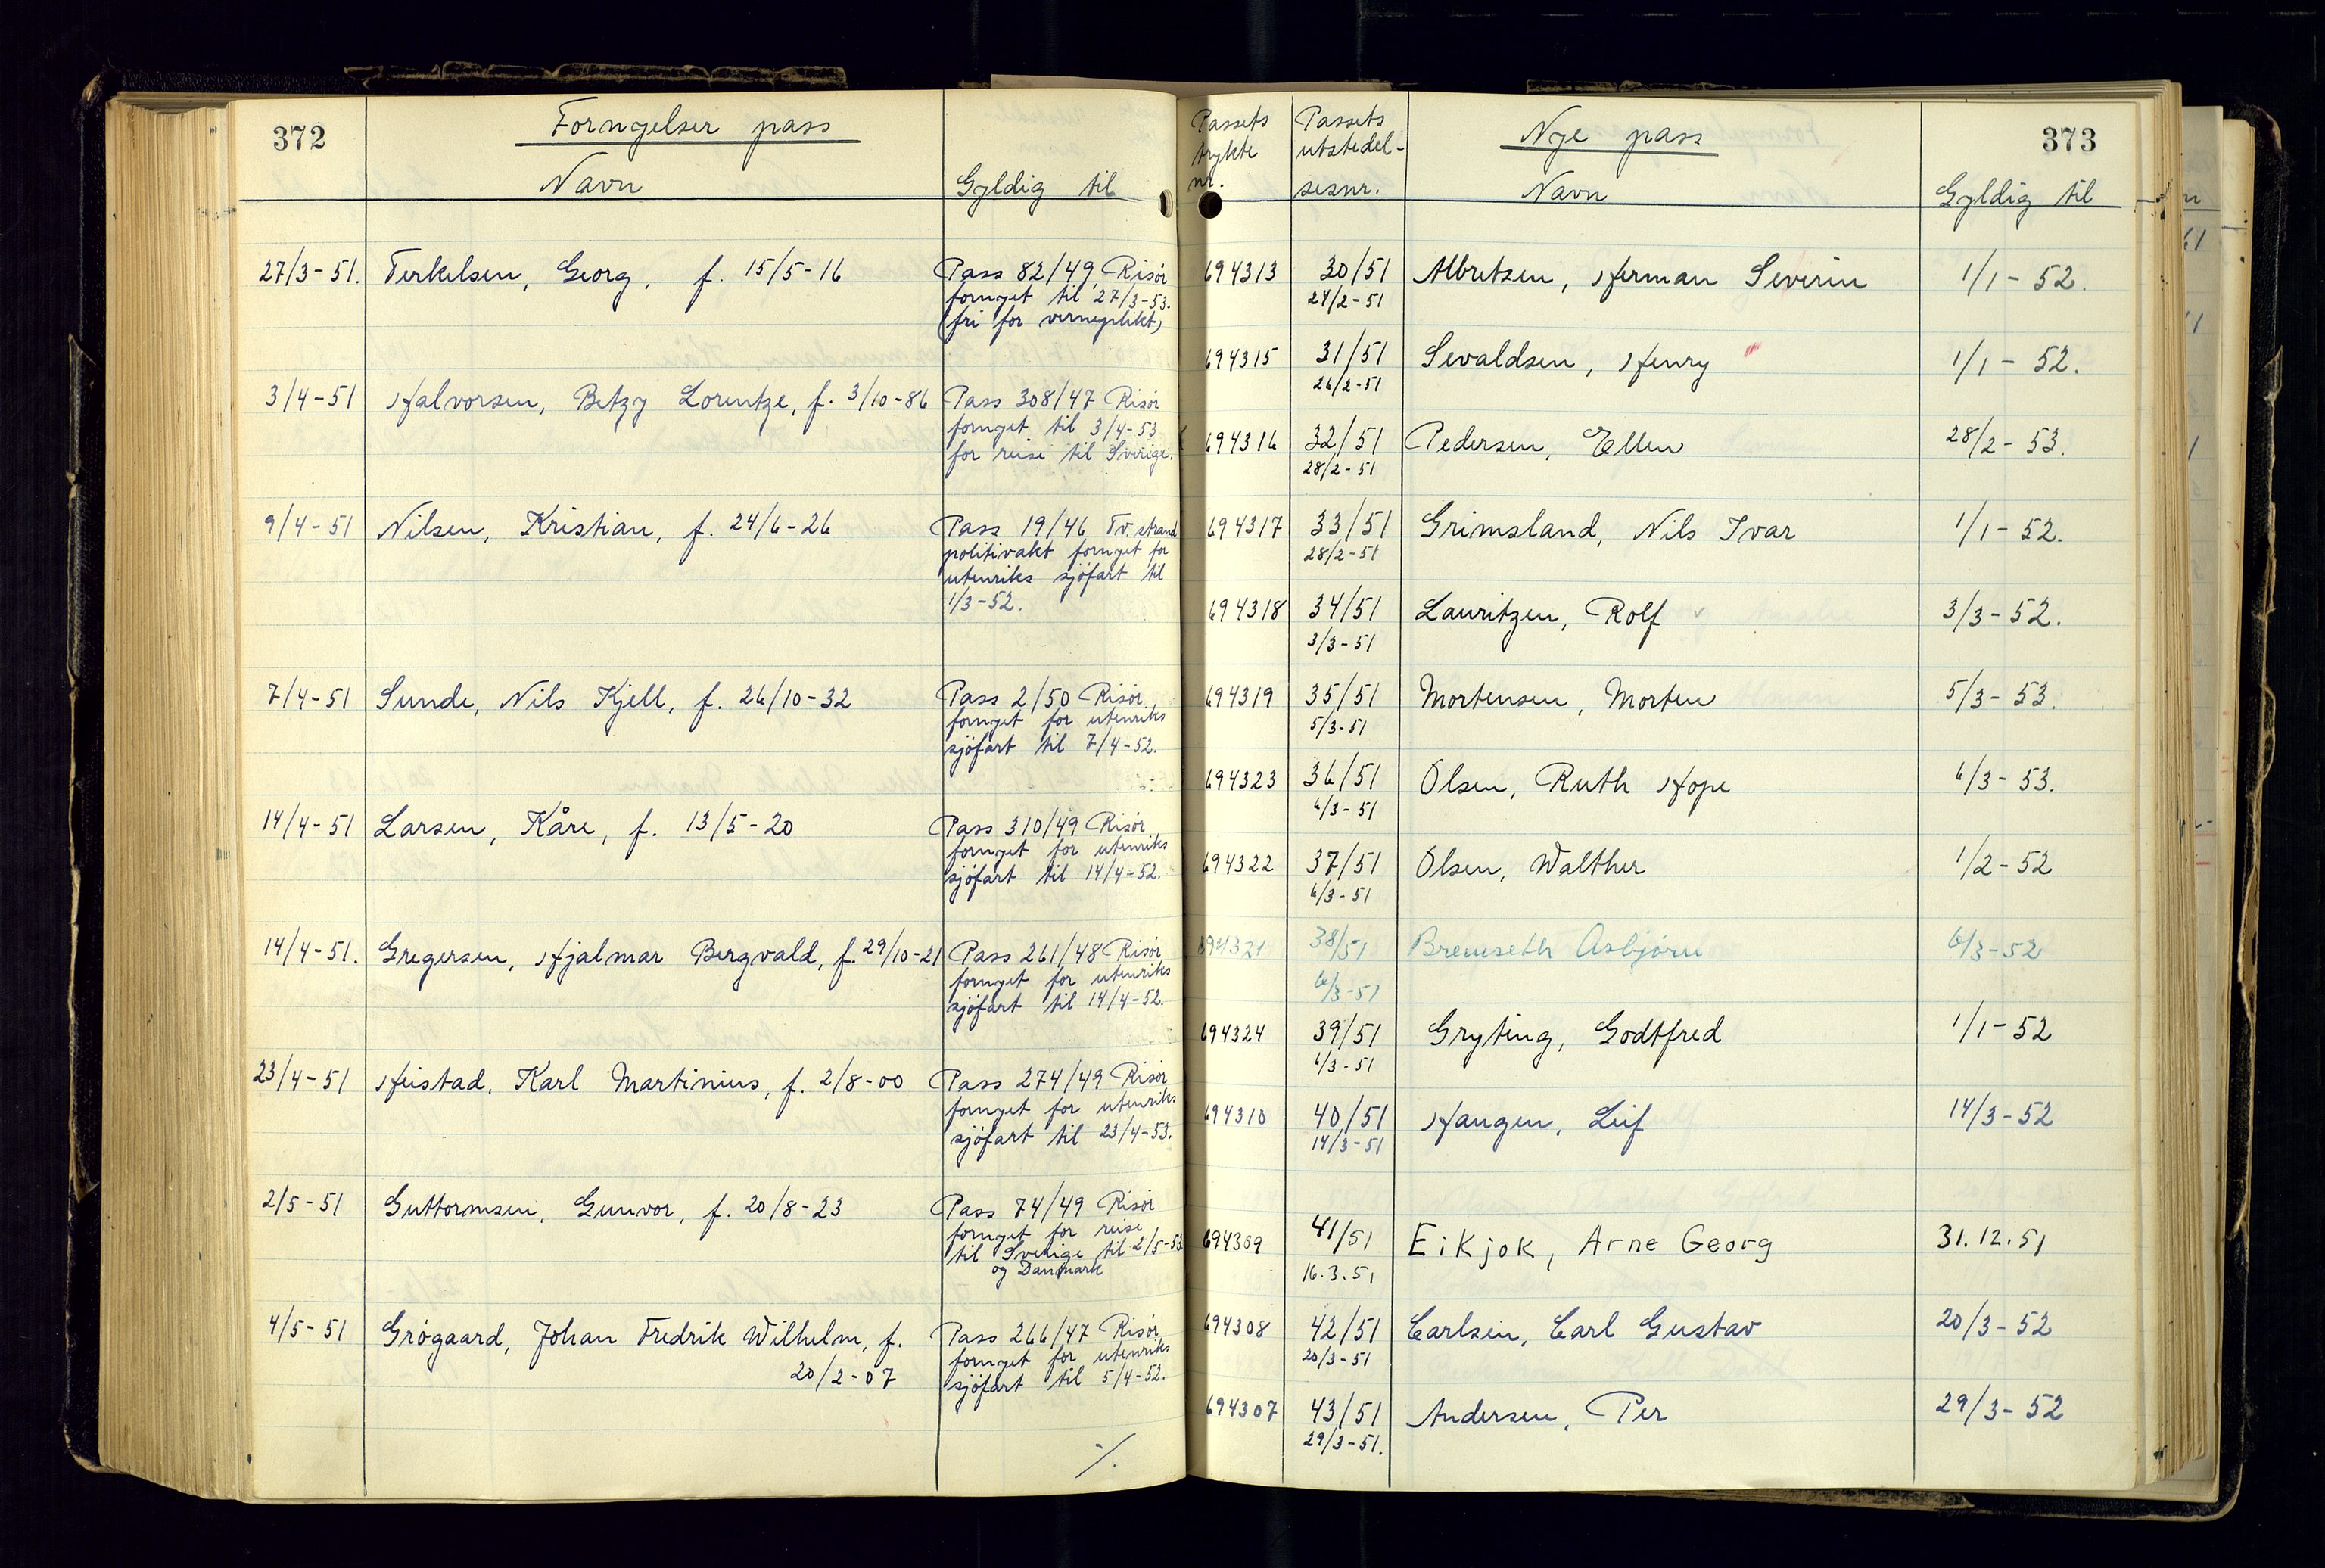 372
Fornyelser pass
Navn
Gyldig til
27/3-51. Terkelsen, Georg, f. 15/5-16
Pass 82/49, Risør
fornyet til 27/3-53.
(fri for verneplikt)
3/4-51 Halvorsen, Betzy Lorentze, f. 3/10-86
Pass 308/47 Risør
fornyet til 3/4-53
for reise til Sverige.
9/4-51 Nilsen, Kristian, f. 24/6-26
Pass 19/46 Tv.strand
politivakt fornyet for
utenriks sjöfart til
1/3-52.
7/4-51 Sunde, Nils Kjell, f. 26/10-32
Pass 2/50 Risør,
fornyet for utenriks
sjöfart til 7/4-52.
14/4-51 Larsen, Kåre, f. 13/5-20
Pass 310/49 Risør,
fornyet for utenriks
sjöfart til 14/4-52.
14/4-51. Gregersen, Hjalmar Bergvald, f. 29/10-21
Pass 261/48 Risør
fornyet for utenriks
sjöfart til 14/4-52.
23/4-51 Heistad, Karl Martinius, f. 2/8-00
Pass 274/49 Risør
fornyet for utenriks
sjöfart til 23/4-53.
2/5-51 Guttormsen, Gunvor, f. 20/8-23
Pass 74/49 Risør
fornyet for reise
til Sverige til 2/5-53
og Danmark
4/5-51 Grögaard, Johan Fredrik Wilhelm, f.
20/2-07
Pass 266/47 Risør,
fornyet for utenriks
sjöfart til 5/4-52.
./.
373
Passets
trykte
nr.
Passets
utstedel-
sesnr.
Nye pass
Navn
Gyldig til
694313 30/51 Albretsen, Herman Severin 1/1-52.
24/2-51
694315 31/51 Sevaldsen, Henry 1/1-52.
26/2-51
694316 32/51 Pedersen, Ellen 28/2-53.
28/2-51
694317 33/51 Grimsland, Nils Ivar 1/1-52.
28/2-51
694318 34/51 Lauritzen, Rolf 3/3-52.
3/3-51
694319 35/51 Mortensen, Morten 5/3-53.
5/3-51
694323 36/51 Olsen, Ruth Hope 6/3-53.
6/3-51
694322 37/51 Olsen, Walther 1/2-52
6/3-51
694321 38/51 Bremseth Asbjörn 6/3-52
6/3-51
694324 39/51 Gryting, Godtfred 1/1-52
6/3-51
694310 40/51 Haugen, Leif 14/3-52
14/3-51
694309 41/51 Eikjok, Arne Georg 31.12.51
16.3.51
694308 42/51 Carlsen, Carl Gustav 20/3-52
20/3-51
694307 43/51 Andersen, Per 29/3-52
29/3-51.